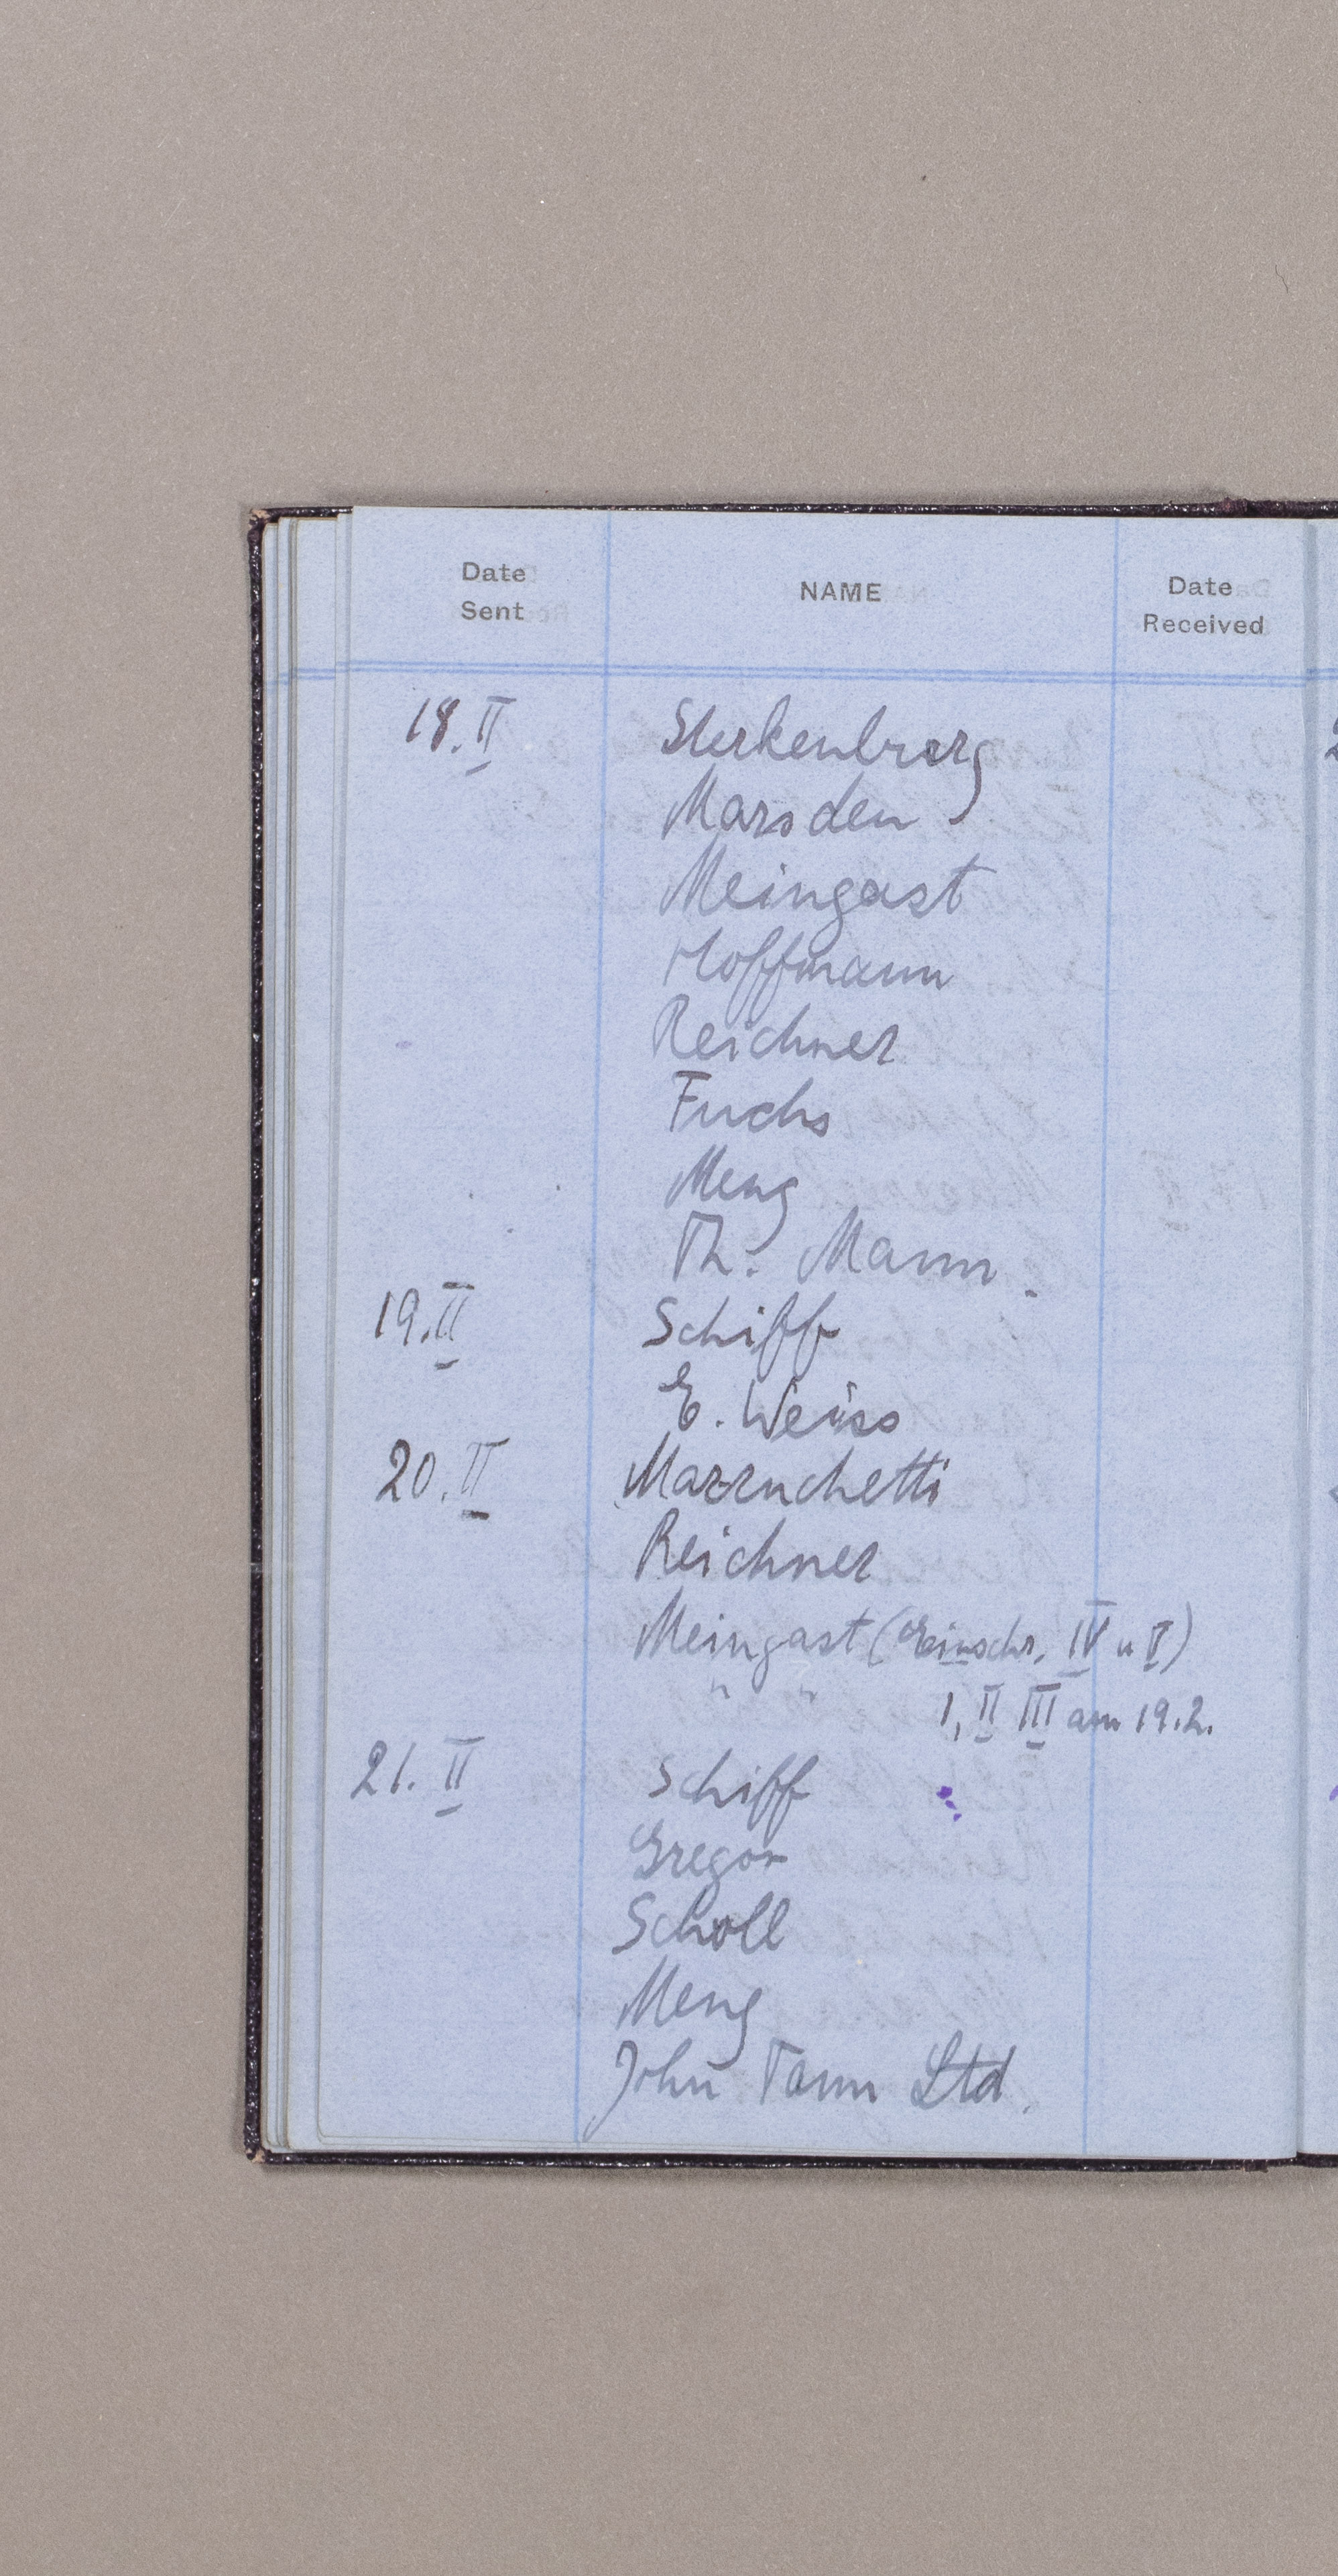 Date Sent NAME Date Received
18. II Sterkenburg
Marsden
Meingast
Hoffmann
Reichner
Fuchs
Meng
Th. Mann.
19. II Schiff
E. Weiss
20. II Marruchetti
Reichner
Meingast (Einschr. IV u V)
" " I, II III am 19.2.
21. II Schiff
Gregor
Scholl
Meng
John Tann Ltd.